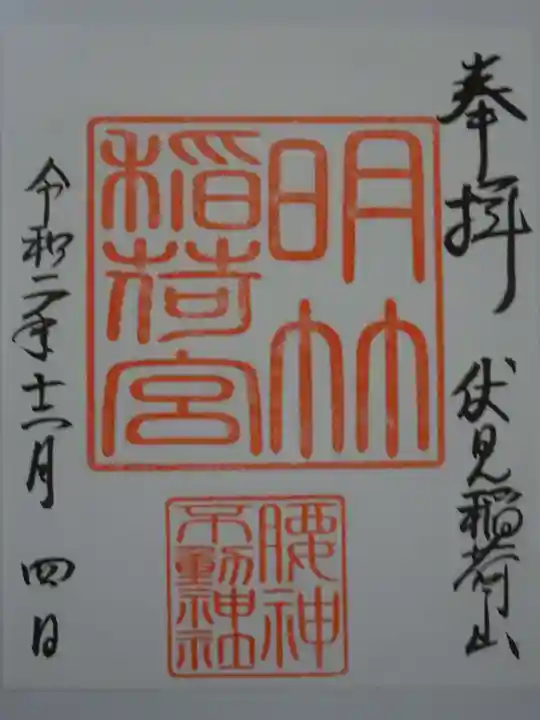 奉拝
伏見稲荷山
明竹
稲荷宮
腰神
不動神社
令和二年十二月四日